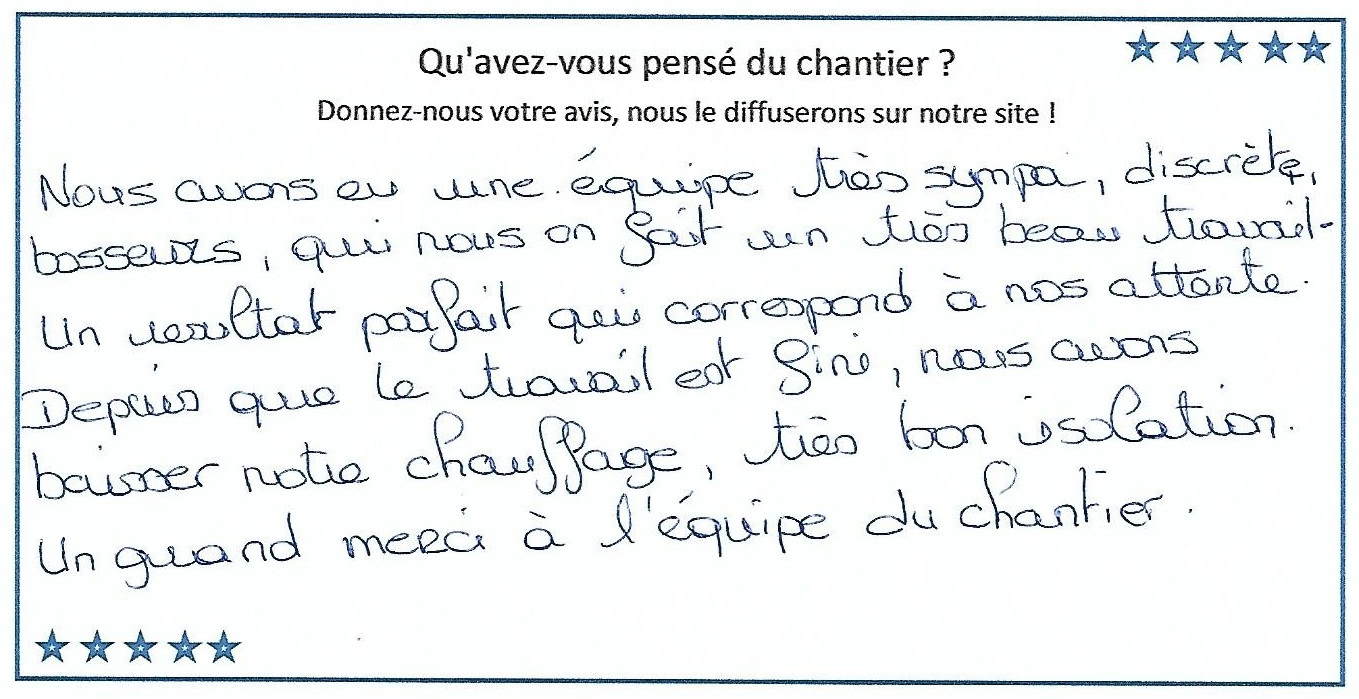 Qu'avez-vous pensé du chantier ?
Donnez-nous votre avis, nous le diffuserons sur notre site !
Nous avons eu une équipe très sympa, discrète,
bosseurs, qui nous on fait un très beau travail.
Un resultat parfait qui correspond à nos attente.
Depuis que le travail est fini, nous avons
baisser notre chauffage, très bon isolation.
Un grand merci à l'équipe du chantier.